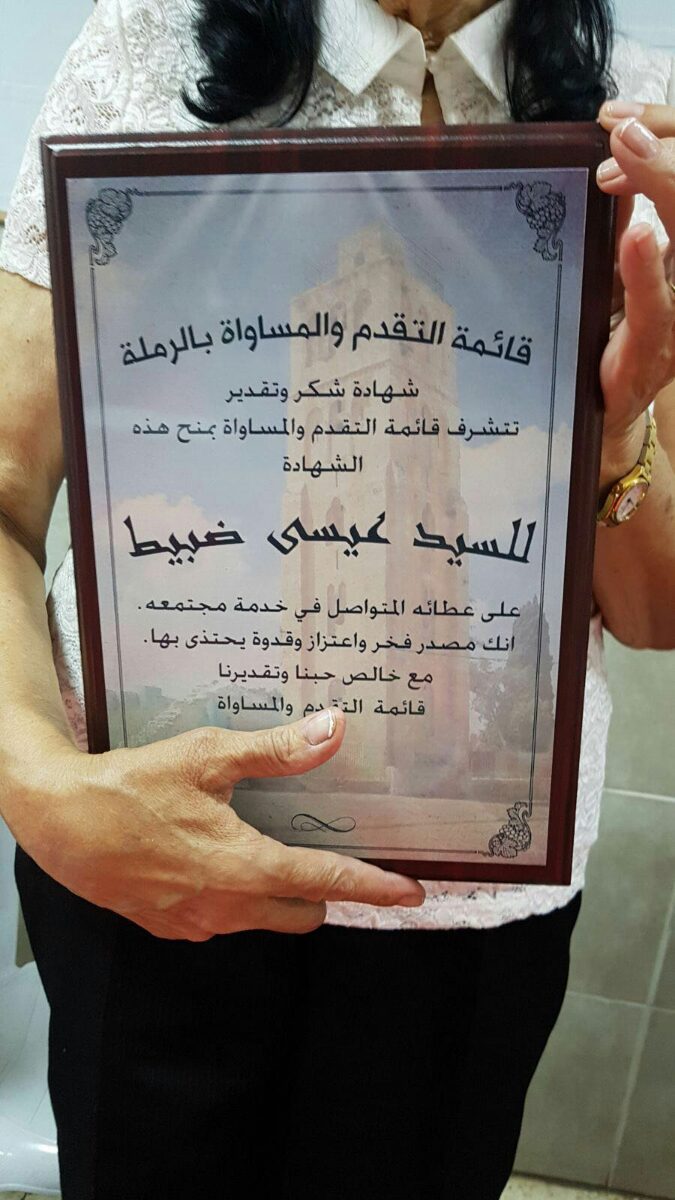 قائمة التقدم والمساواة بالرملة
شهادة شكر وتقدير
تتشرف قائمة التقدم والمساواة بمنح هذه
الشهادة
للسيد عيسى ضبيط
على عطائه المتواصل في خدمة مجتمعه.
انك مصدر فخر واعتزاز وقدوة يحتذى بها.
مع خالص حبنا وتقديرنا
قائمة التقدم والمساواة